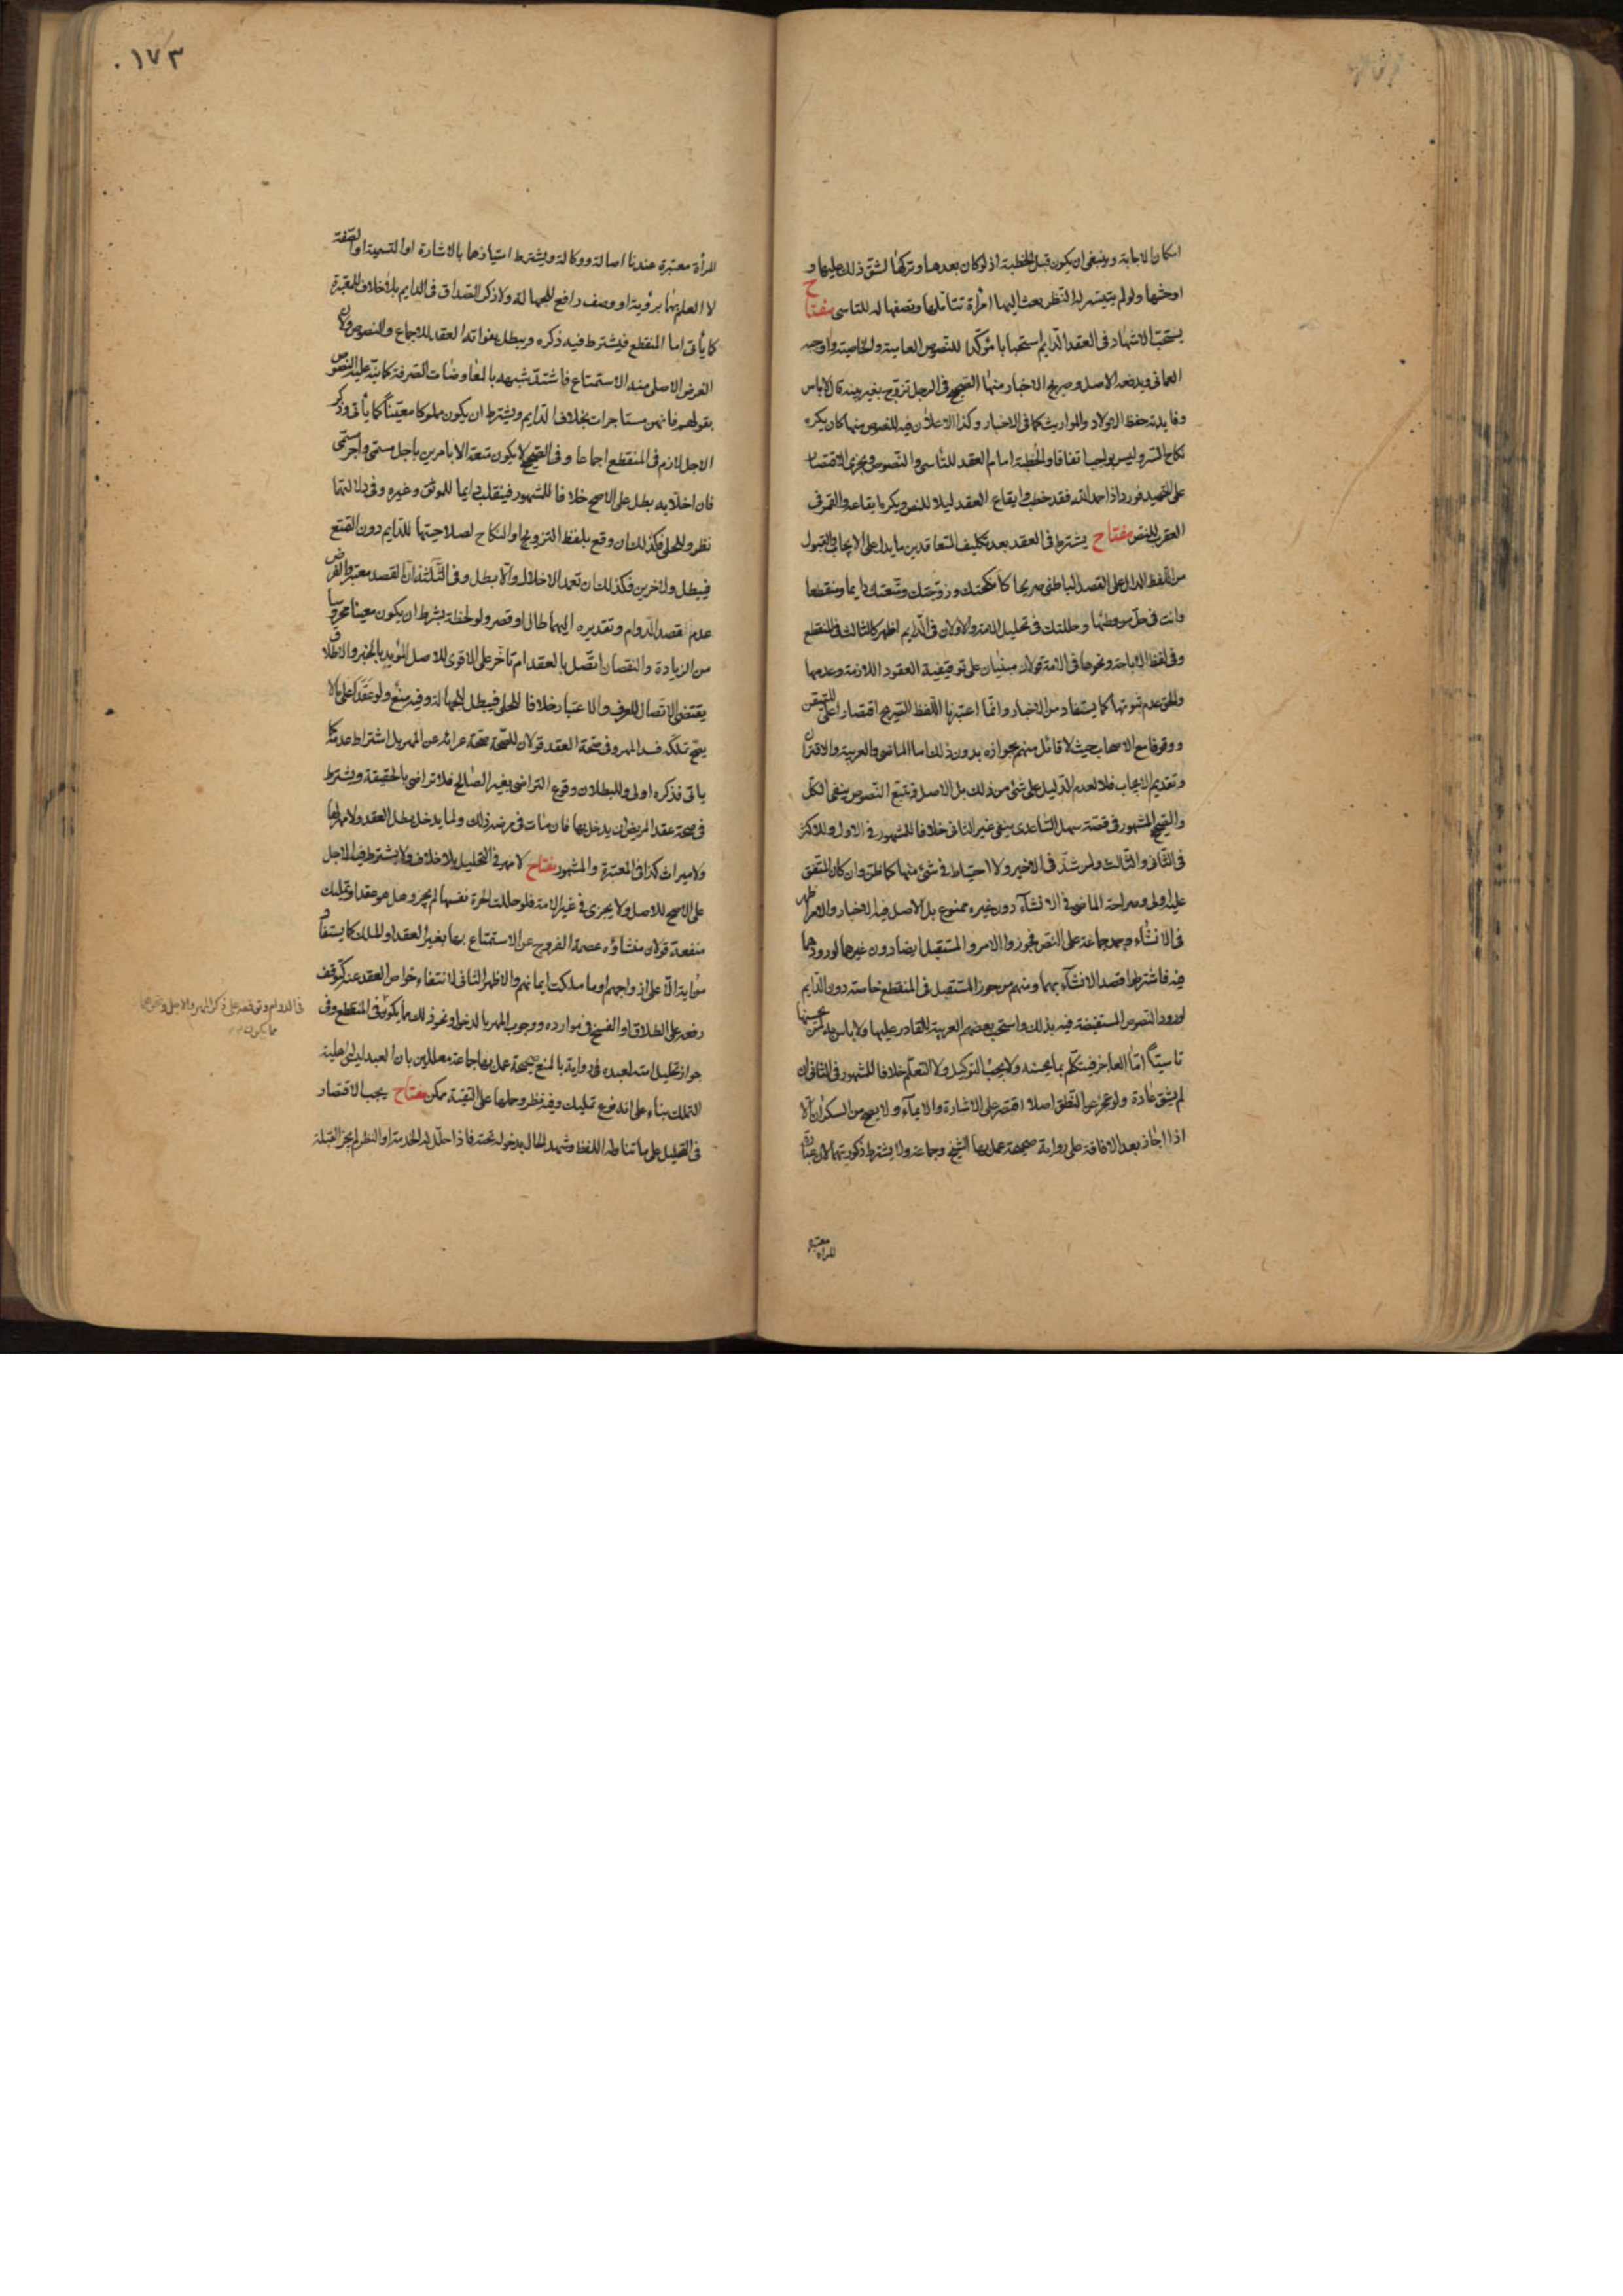 امكان الاجابة وينبغى ان يكون قبل الخطبة اذ لو كان بعدها وتركها لشق ذلك عليها و
اوحشها ولو لم يتيسر له النظر بعث اليها امرأة تتأملها وتصفها له للتاسى مفتاح
يستحبّ الاشهاد فى العقد الدايم استحبابا مؤكدا للنصوص العامية والخاصية واوجبه
العمانى ويدفعه الاصل وصريح الاخبار منها الصحيح فى الرجل تزوج بغير بينة قال لا باس
وفايدته حفظ الاولاد والمواريث كما فى الاخبار وكذا الاعلان فيه للنصوص منها كان يكره
نكاح السر وليس بواجب اتفاقا والخطبة امام العقد للتأسى والنصوص ويجزى الاقتصار
على التحميد فورد اذا حمد الله فقد خطب وايقاع العقد ليلا للنص ويكره ايقاعه والقمر فى
العقرب للنص مفتاح يشترط فى العقد بعد تكليف المتعاقدين ما يدل على الايجاب والقبول
من اللفظ الدال على القصد الباطنى صريحا كانكحتك وزوّجتك ومتّعتك دايما ومنقطعا
وانت فى حل من وطئها وحللتك فى تحليل الامة والاولان فى الدايم اظهر كالثالث فى المنقطع
وفى لفظ الاباحة ونحوها فى الامة قولان مبنيان على توقيفية العقود اللازمة وعدمها
والحق عدم ثبوتها كما يستفاد من الاخبار وانما اعتبرنا اللفظ الصريح اقتصارا على المتيقن
ووقوفا مع الاصحاب حيث لا قائل منهم بجوازه بدون ذلك اما الماضى والعربية والاقتران
وتقديم الايجاب فلا لعدم الدليل على شئ من ذلك بل الاصل وتتبع النصوص ينفى الكل
والصحيح المشهور فى قصة سهل الساعدى ينفى غير الثانى خلافا للمشهور فى الاول وللاكثر
فى الثانى والثالث ولمن شذّ فى الاخير ولا احتياط فى شئ منها كما ظن وان كان المتفق
عليه اولى وصراحة الماضى فى الانشاء دون غيره ممنوع بل الاصل فيه الاخبار والامر اظهر
فى الانشاء وجمد جماعة على النص فجوزوا الامر والمستقبل ايضا دون غيرهما لورودهما
فيه فاشترطوا قصد الانشاء بهما ومنهم من جوز المستقبل فى المنقطع خاصة دون الدايم
لورود النصوص المستفيضة فيه بذلك واستحب بعضهم العربية للقادر عليها ولا باس به لمن يحسنها
تاسيّا امّا العاجز فيتكلم بما يحسنه ولا يجب التوكيل ولا التعلم خلافا للمشهور فى الثانى ان
لم يشق عادة ولو عجز عن النطق اصلا اقتصر على الاشارة والايماء ولا يصح من السكران الا
اذا اجاز بعد الافاقة على رواية صحيحة عمل بها الشيخ وجماعة ولا يشترط ذكوريتهما لان عبارة
المراة
معتبرة
١٧٣
المرأة معتبرة عندنا اصالة ووكالة ويشترط امتيازهما بالاشارة او التسمية او الصفة
لا العلم بها برؤية او وصف رافع للجهالة ولا ذكر الصداق فى الدايم بلا خلاف للمعتبرة
كما يأتى اما المنقطع فيشترط فيه ذكره ويبطل بفواته العقد للاجماع والنصوص ولان
الغرض الاصلى منه الاستمتاع فاشتدّ شبهه بالمعاوضات الصرفة كما نبّه عليه النصوص
بقولهم فانهن مستاجرات بخلاف الدايم ويشترط ان يكون مملوكا معيّنا كما يأتى وذكر
الاجل لازم فى المنقطع اجماعا وفى الصحيح لا يكون متعة الا بامرين باجل مسمى واجر مسمى
فان اخلا به بطل على الاصح خلافا للمشهور فينقلب دايما للموثق وغيره وفى دلالتهما
نظر وللحلى فكذلك ان وقع بلفظ التزويج او النكاح لصلاحيتهما للدايم دون التمتع
فيبطل ولاخرين فكذلك ان تعمد الاخلال والا بطل وفى الثلثة ان القصد معتبر والفرض
عدم القصد الدوام وتقديره اليهما طال او قصر ولو لحظة بشرط ان يكون معينا محروسا
من الزيادة والنقصان اتّصل بالعقد ام تاخّر على الاقوى للاصل المؤيد بالخبر والاطلاق
يقتضى الاتصال للعرف والاعتبار خلافا للحلى فيبطل للجهالة وفيه منع ولو عقدا على ما لا
يصح تملّكه فسد المهر وفى صحّة العقد قولان للصحة صحّة عرائه عن المهر بل اشتراط عدمه كما
ياتى فذكره اولى وللبطلان وقوع التراضى بغير الصالح فلا تراضى بالحقيقة ويشترط
فى صحة عقد المريض ان يدخل بها فان مات فى مرضه ذلك ولما يدخل بطل العقد ولا مهر لها
ولا ميراث كذا فى المعتبرة والمشهور مفتاح لا مهر فى التحليل بلا خلاف ولا يشترط فيه الاجل
على الاصح للاصل ولا يجزى فى غير الامة فلو حللت الحرة نفسها لم يجز وهل هو عقد او تمليك
منفعة قولان منشاؤه عصمة الفروج عن الاستمتاع بها بغير العقد او الملك كما يستفاد
من اية الا على ازواجهم او ما ملكت ايمانهم والاظهر الثانى لانتفاء خواص العقد عنه كتوقف
رفعه على الطلاق او الفسخ فى موارده ووجوب المهر بالدخول ونحو ذلك مما يكون فى المنقطع وفى
جواز تحليل امته لعبده فى رواية بالمنع صحيحة عمل بها جماعة معللين بان العبد ليس له اهلية
التملك بناء على انه نوع تمليك وفيه نظر وحملها على التقية ممكن مفتاح يجب الاقتصار
فى التحليل على ما تناوله اللفظ وشهد الحال بدخوله تحته فاذا حلّل له الخدمة او النظر لم يجز القبلة
فى الدوام وتوقفه على ذكر المهر والاجل ونحوهما
مما يكون